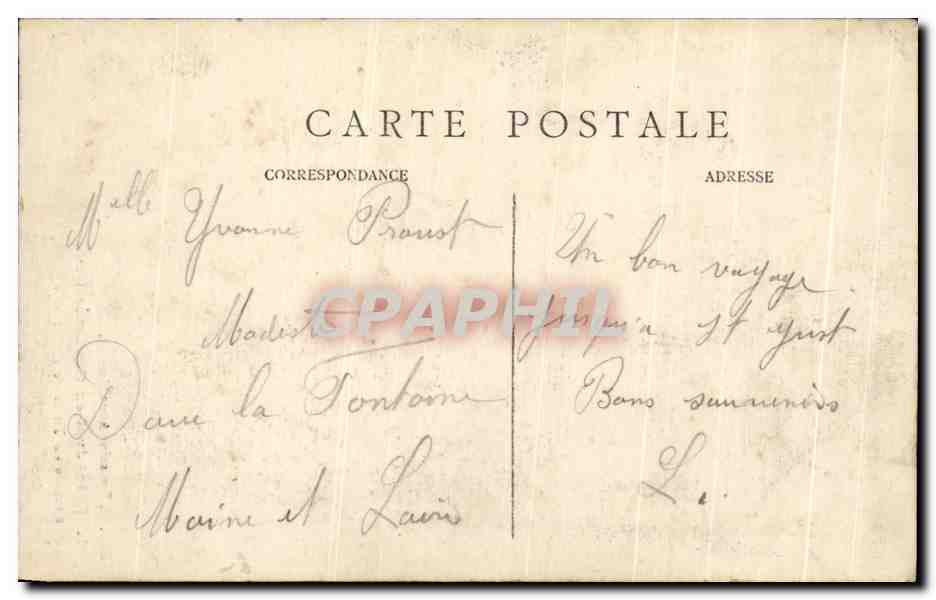 CARTE POSTALE
CORRESPONDANCE
ADRESSE
Melle Yvonne Proust
Modiste
Doué la Fontaine
Maine et Loire
Un bon voyage
jusqu'a St Just
Bons souvenirs
L.
CPAPHIL